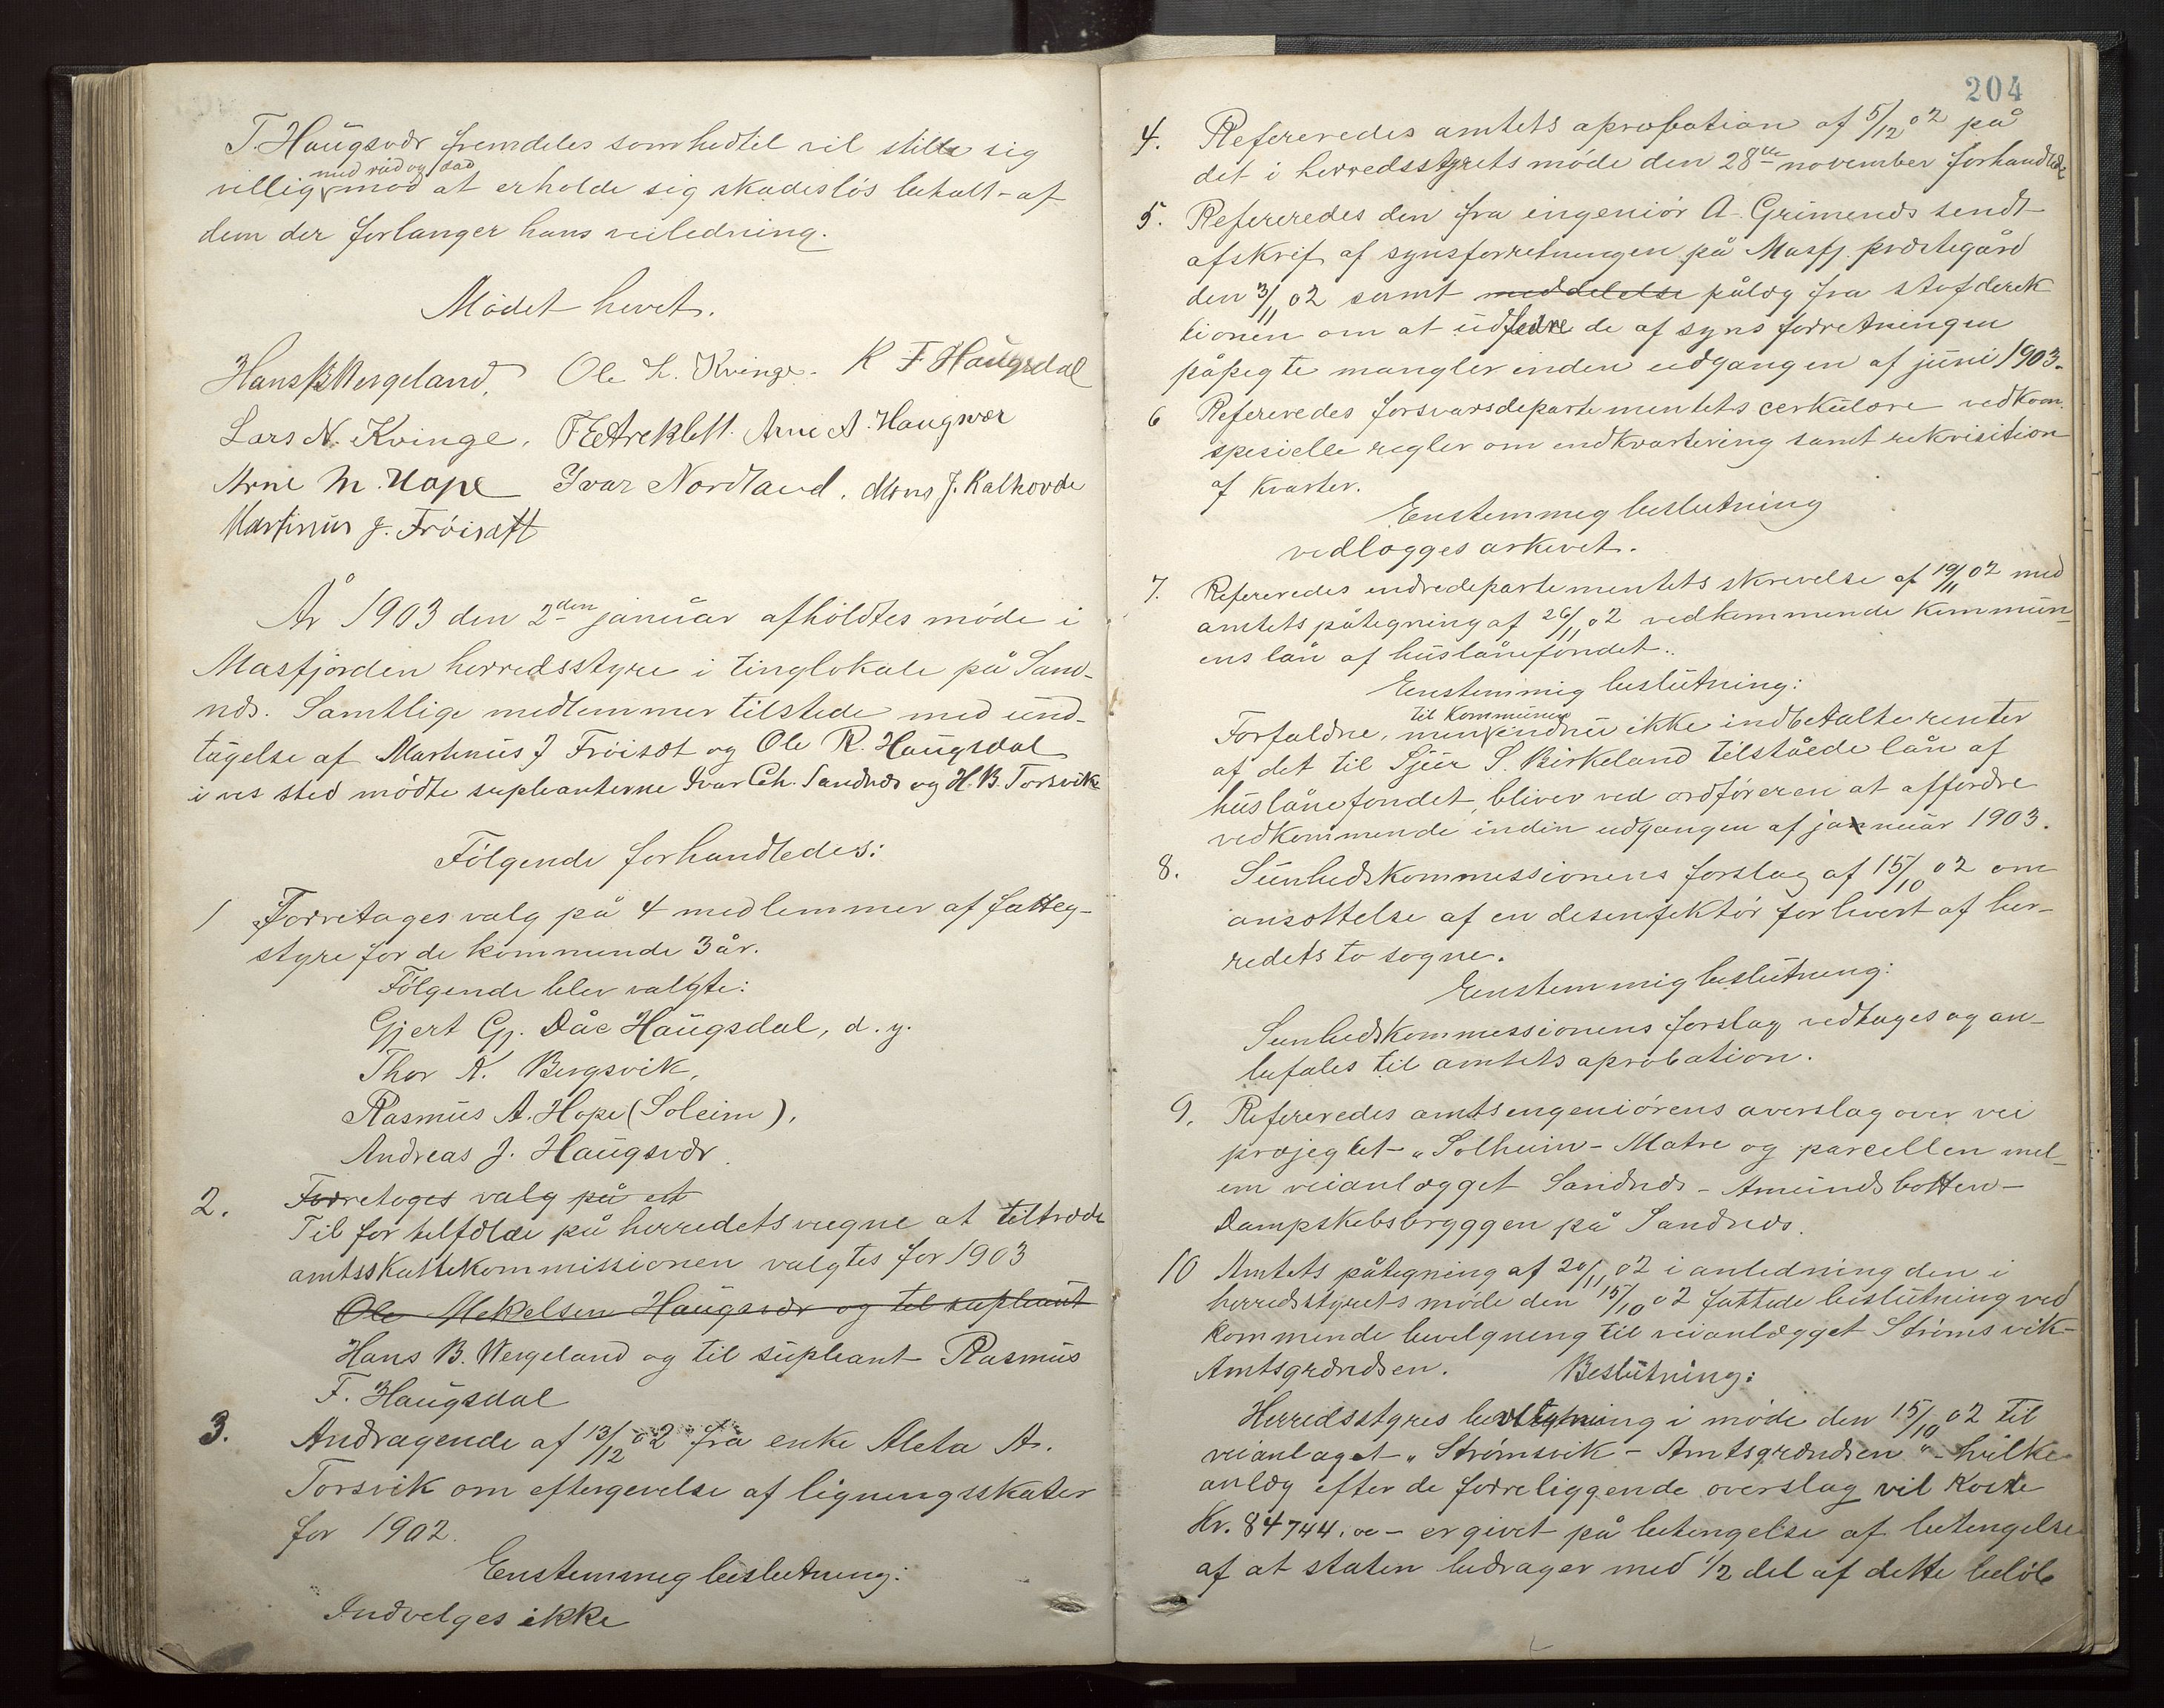 T. Haugsvær fremdeles som hedtil vil stille sig
med råd og dåd
villig mod at erholde sig skadesløs betalt af
dem der forlanger hans veiledning.
Mødet hevet.
Hans B Wergeland, Ole L. Kvinge. R F Haugsdal
Lars N. Kvinge. Arne A. Haugsvær
Arne M. Hope Ivar Nordland. Mons J. Kalhovde
Martinus J. Frøisæt
År 1903 den 2den januar afholdtes møde i
Masfjorden herredsstyre i tinglokale på Sand-
nds. Samtlige medlemmer tilstede med und-
tagelse af Martinus J Frøisæt og Ole R. Haugsdal
i ves sted mødte supleanterne Ivar Ch. Sandnds og H. B. Torsvik
Følgende forhandledes:
1 Forretages valg på 4 medlemmer af fatteg-
styre for de kommende 3 år.
Følgende blev valgte:
Gjert Gj. Dåe Haugsdal, d. y.
Thor K. Bergsvik,
Rasmus A. Hope (Soleim),
Andreas J. Haugsvær
2. Forretages valg på et
Til for tilfælde på herredets vegne at tiltræde
amtsskattekommissionen valgtes for 1903
Ole Mekelsen Haugsvær og til supleant
Hans B. Wergeland og til supleant Rasmus
F. Haugsdal
3. Andragende af 13/12 02 fra enke Aleta A.
Torsvik om eftergevelse af ligningsskater
for 1902.
Enstemmeg beslutning:
Indvelges ikke
204
4. Refereredes amtets aprobation af 5/12 02 på
det i herredsstyrets møde den 28de november forhandlede
5. Refereredes den fra ingeniør A. Grimends sendt
afskrift af synsforretningen på Masfj. præstegård
den 3/11 02 samt meddelelse pålæg fra stofderek
tionen om at udfedre de af synsforretningen
påpegte mangler inden udgangen af juni 1903.
6 Refereredes forsvarsdepartementets cerkulære vedkom.
spesielle regler om indkvartering samt rekvisition
af kvarter.
Enstemmeg beslutning
vedlægges arkivet.
7. Refereredes indredepartementets skrevelse af 19/11 02 med
amtets påtegning af 26/11 02 vedkommende kommun-
ens lån af huslånefondet.
Eenstemmig beslutning:
til kommunen
Forfaldne, men endnu ikke indbetalte renter
af det til Sjur S. Birkeland tilståede lån af
huslånefondet, bliver ved ordføreren at affordre
vedkommende inden udgangen af januar 1903.
8. Sunhedskommessionens forslag af 15/10 02 om
ansættelse af en desenfektør for hvert af her-
redets to sogne.
Eenstemmig beslutning:
Sunhedskommessionens forslag vedtages og an-
befales til amtets aprobation.
9. Refereredes amtsengeniørens averslag over vei
projegtet "Solheim - Matre og parcellen mel-
em veianlægget Sandnds - Amundsbotten -
Dampskebsbrygggen på Sandnds.
10 Amtets påtegning af 20/11 02 i anledning den i
herredsstyrets møde den 15/10 02 fattede beslutning ved
kommende bevelgning til veianlægget Strømsvik -
Amtsgrændsen. Beslutning:
Herredsstyres bevilgning i møde den 15/10 02 til
veianlaget "Strømsvik - Amtsgrændsen" - hvilke
anlæg efter de forreliggende overslag vil koste
Kr. 84744.00 - er givet på betengelse af betengelse
af at staten bedrager med 1/2 del af dette beløb